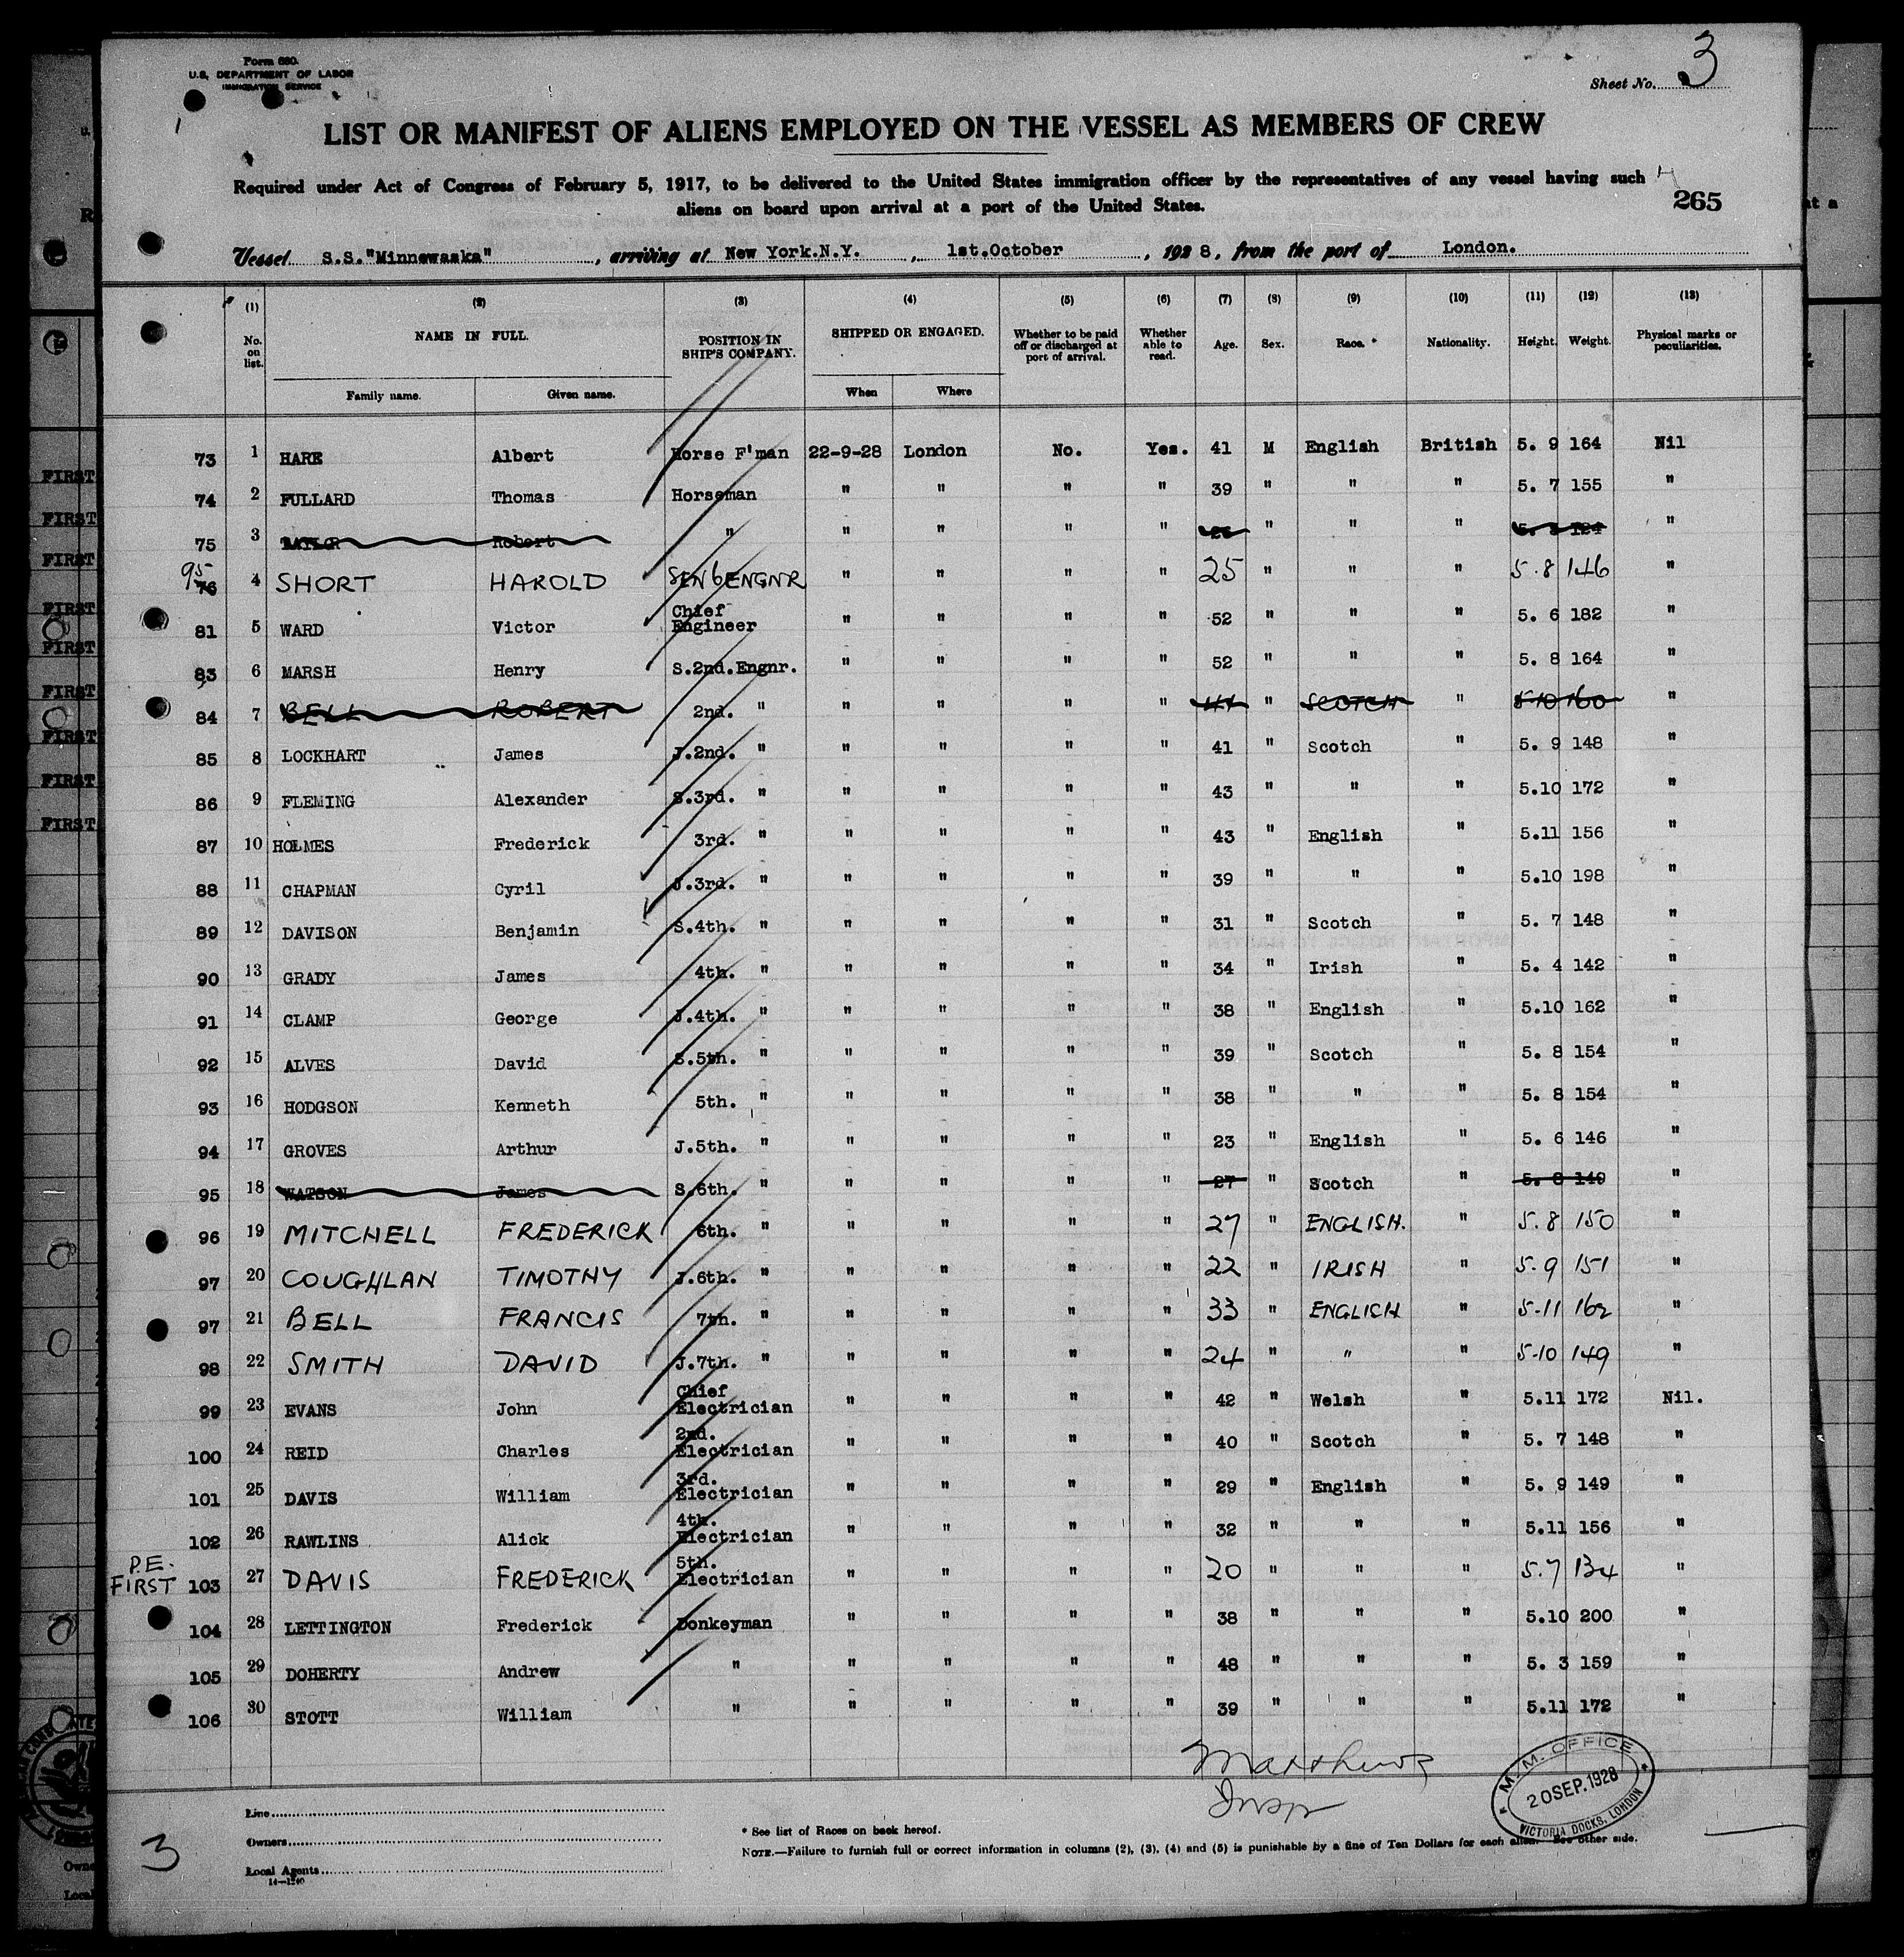 Form 680.
U.S. DEPARTMENT OF LABOR
IMMIGRATION SERVICE
Sheet No. 3
LIST OR MANIFEST OF ALIENS EMPLOYED ON THE VESSEL AS MEMBERS OF CREW
Required under Act of Congress of February 5, 1917, to be delivered to the United States immigration officer by the representatives of any vessel having such
aliens on board upon arrival at a port of the United States.
265
Vessel S.S."Minnewaska", arriving at New York.N.Y., 1st.October, 1928, from the port of London.
(1) (2) (3) (4) (5) (6) (7) (8) (9) (10) (11) (12) (13)
No. on list. NAME IN FULL. POSITION IN SHIP'S COMPANY. SHIPPED OR ENGAGED. Whether to be paid off or discharged at port of arrival. Whether able to read. Age. Sex. Race. * Nationality. Height. Weight. Physical marks or peculiarities.
Family name. Given name. When Where
73 1 HARE Albert Horse F'man 22-9-28 London No. Yes. 41 M English British 5. 9 164 Nil
74 2 FULLARD Thomas Horseman " " " " 39 " " " 5. 7 155 "
75 3 TAYLOR Robert " " " " " " " " "
95 76 4 SHORT HAROLD SEN 6 ENGNR " " " " 25 " " " 5.8 146 "
81 5 WARD Victor Chief Engineer " " " " 52 " " " 5. 6 182 "
83 6 MARSH Henry S.2nd.Engnr. " " " " 52 " " " 5. 8 164 "
84 7 BELL ROBERT 2nd. " " " " " 44 " SCOTCH " 5 10 160 "
85 8 LOCKHART James J.2nd. " " " " " 41 " Scotch " 5. 9 148 "
86 9 FLEMING Alexander S.3rd. " " " " " 43 " " " 5.10 172 "
87 10 HOLMES Frederick 3rd. " " " " " 43 " English " 5.11 156 "
88 11 CHAPMAN Cyril J.3rd. " " " " " 39 " " " 5.10 198 "
89 12 DAVISON Benjamin S.4th. " " " " " 31 " Scotch " 5. 7 148 "
90 13 GRADY James 4th. " " " " " 34 " Irish " 5. 4 142 "
91 14 CLAMP George J.4th. " " " " " 38 " English " 5.10 162 "
92 15 ALVES David S.5th. " " " " " 39 " Scotch " 5. 8 154 "
93 16 HODGSON Kenneth 5th. " " " " " 38 " " " 5. 8 154 "
94 17 GROVES Arthur J.5th. " " " " " 23 " English " 5. 6 146 "
95 18 WATSON James S.6th. " " " " " 27 " Scotch " 5. 8 149 "
96 19 MITCHELL FREDERICK 6th. " " " " " 27 " ENGLISH. " 5.8 150 "
97 20 COUGHLAN TIMOTHY J.6th. " " " " " 22 " IRISH " 5.9 151 "
97 21 BELL FRANCIS 7th. " " " " " 33 " ENGLISH " 5-11 162 "
98 22 SMITH DAVID J.7th. " " " " " 24 " " " 5-10 149 "
99 23 EVANS John Chief Electrician " " " " 42 " Welsh " 5.11 172 Nil.
100 24 REID Charles 2nd. Electrician " " " " 40 " Scotch " 5. 7 148 "
101 25 DAVIS William 3rd. Electrician " " " " 29 " English " 5. 9 149 "
102 26 RAWLINS Alick 4th. Electrician " " " " 32 " " " 5.11 156 "
P.E. FIRST 103 27 DAVIS FREDERICK 5th. Electrician " " " " 20 " " " 5.7 134 "
104 28 LETTINGTON Frederick Donkeyman " " " " 38 " " " 5.10 200 "
105 29 DOHERTY Andrew " " " " " 48 " " " 5. 3 159 "
106 30 STOTT William " " " " " 39 " " " 5.11 172 "
Matthews
Insp
M. M. OFFICE
20 SEP. 1928
VICTORIA DOCKS, LONDON
Line
Owners
Local Agents
14—1240
3
* See list of Races on back hereof.
NOTE.—Failure to furnish full or correct information in columns (2), (3), (4) and (5) is punishable by a fine of Ten Dollars for each alien. See other side.
FIRST
FIRST
FIRST
FIRST
FIRST
FIRST
FIRST
FIRST
FIRST